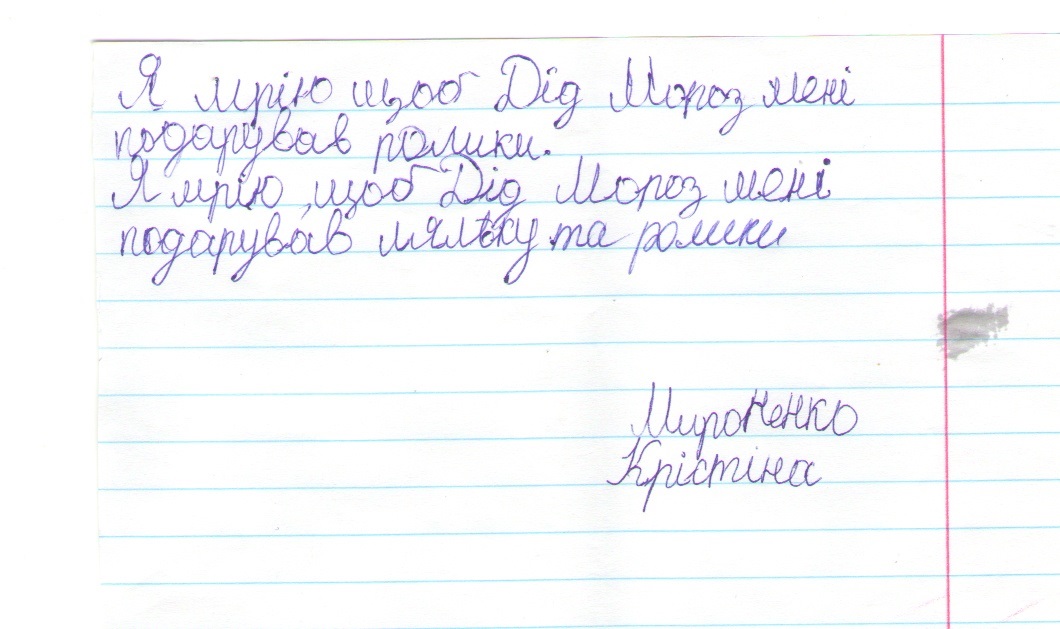 Я мрію щоб Дід Мороз мені
подарував ролики.
Я мрію, щоб Дід Мороз мені
подарував ляльку та ролики
Мироненко
Крістіна